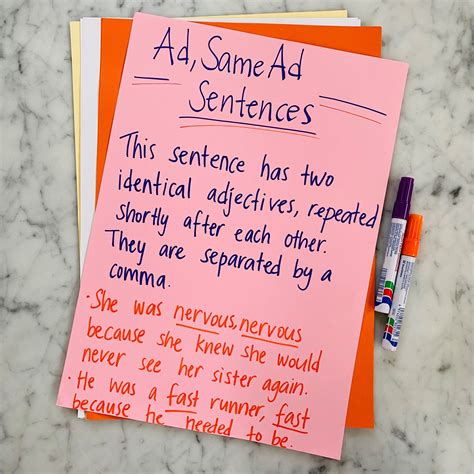 Ad, Same Ad
Sentences
This sentence has two
identical adjectives, repeated
shortly after each other.
They are separated by a
comma.
· She was nervous, nervous
because she knew she would
never see her sister again.
· He was a fast runner, fast
because he needed to be.